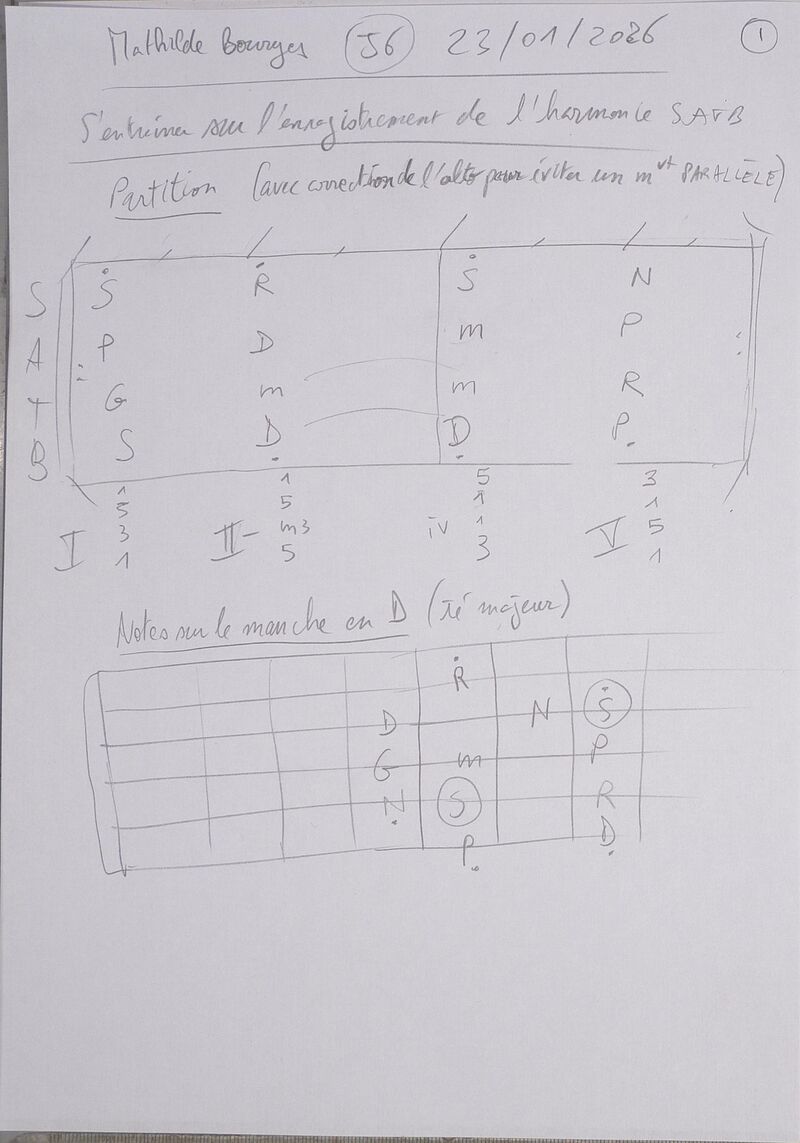 Mathilde Bourges J6 23/01/2026 1
S'entraîner sur l'enregistrement de l'harmonie SATB
Partition (avec correction de l'alto pour éviter un mvt PARALLÈLE)
S Ṡ Ṙ Ṡ N
A P D m P
T : G m m R :
B S Ḍ Ḍ P̣
1 1 5 3
5 5 1 1
I 3 II- m3 iv 1 V 5
1 5 3 1
Notes sur le manche en D (ré majeur)
Ṙ
D N Ṡ
G m P
Ṇ S R
P̣ Ḍ